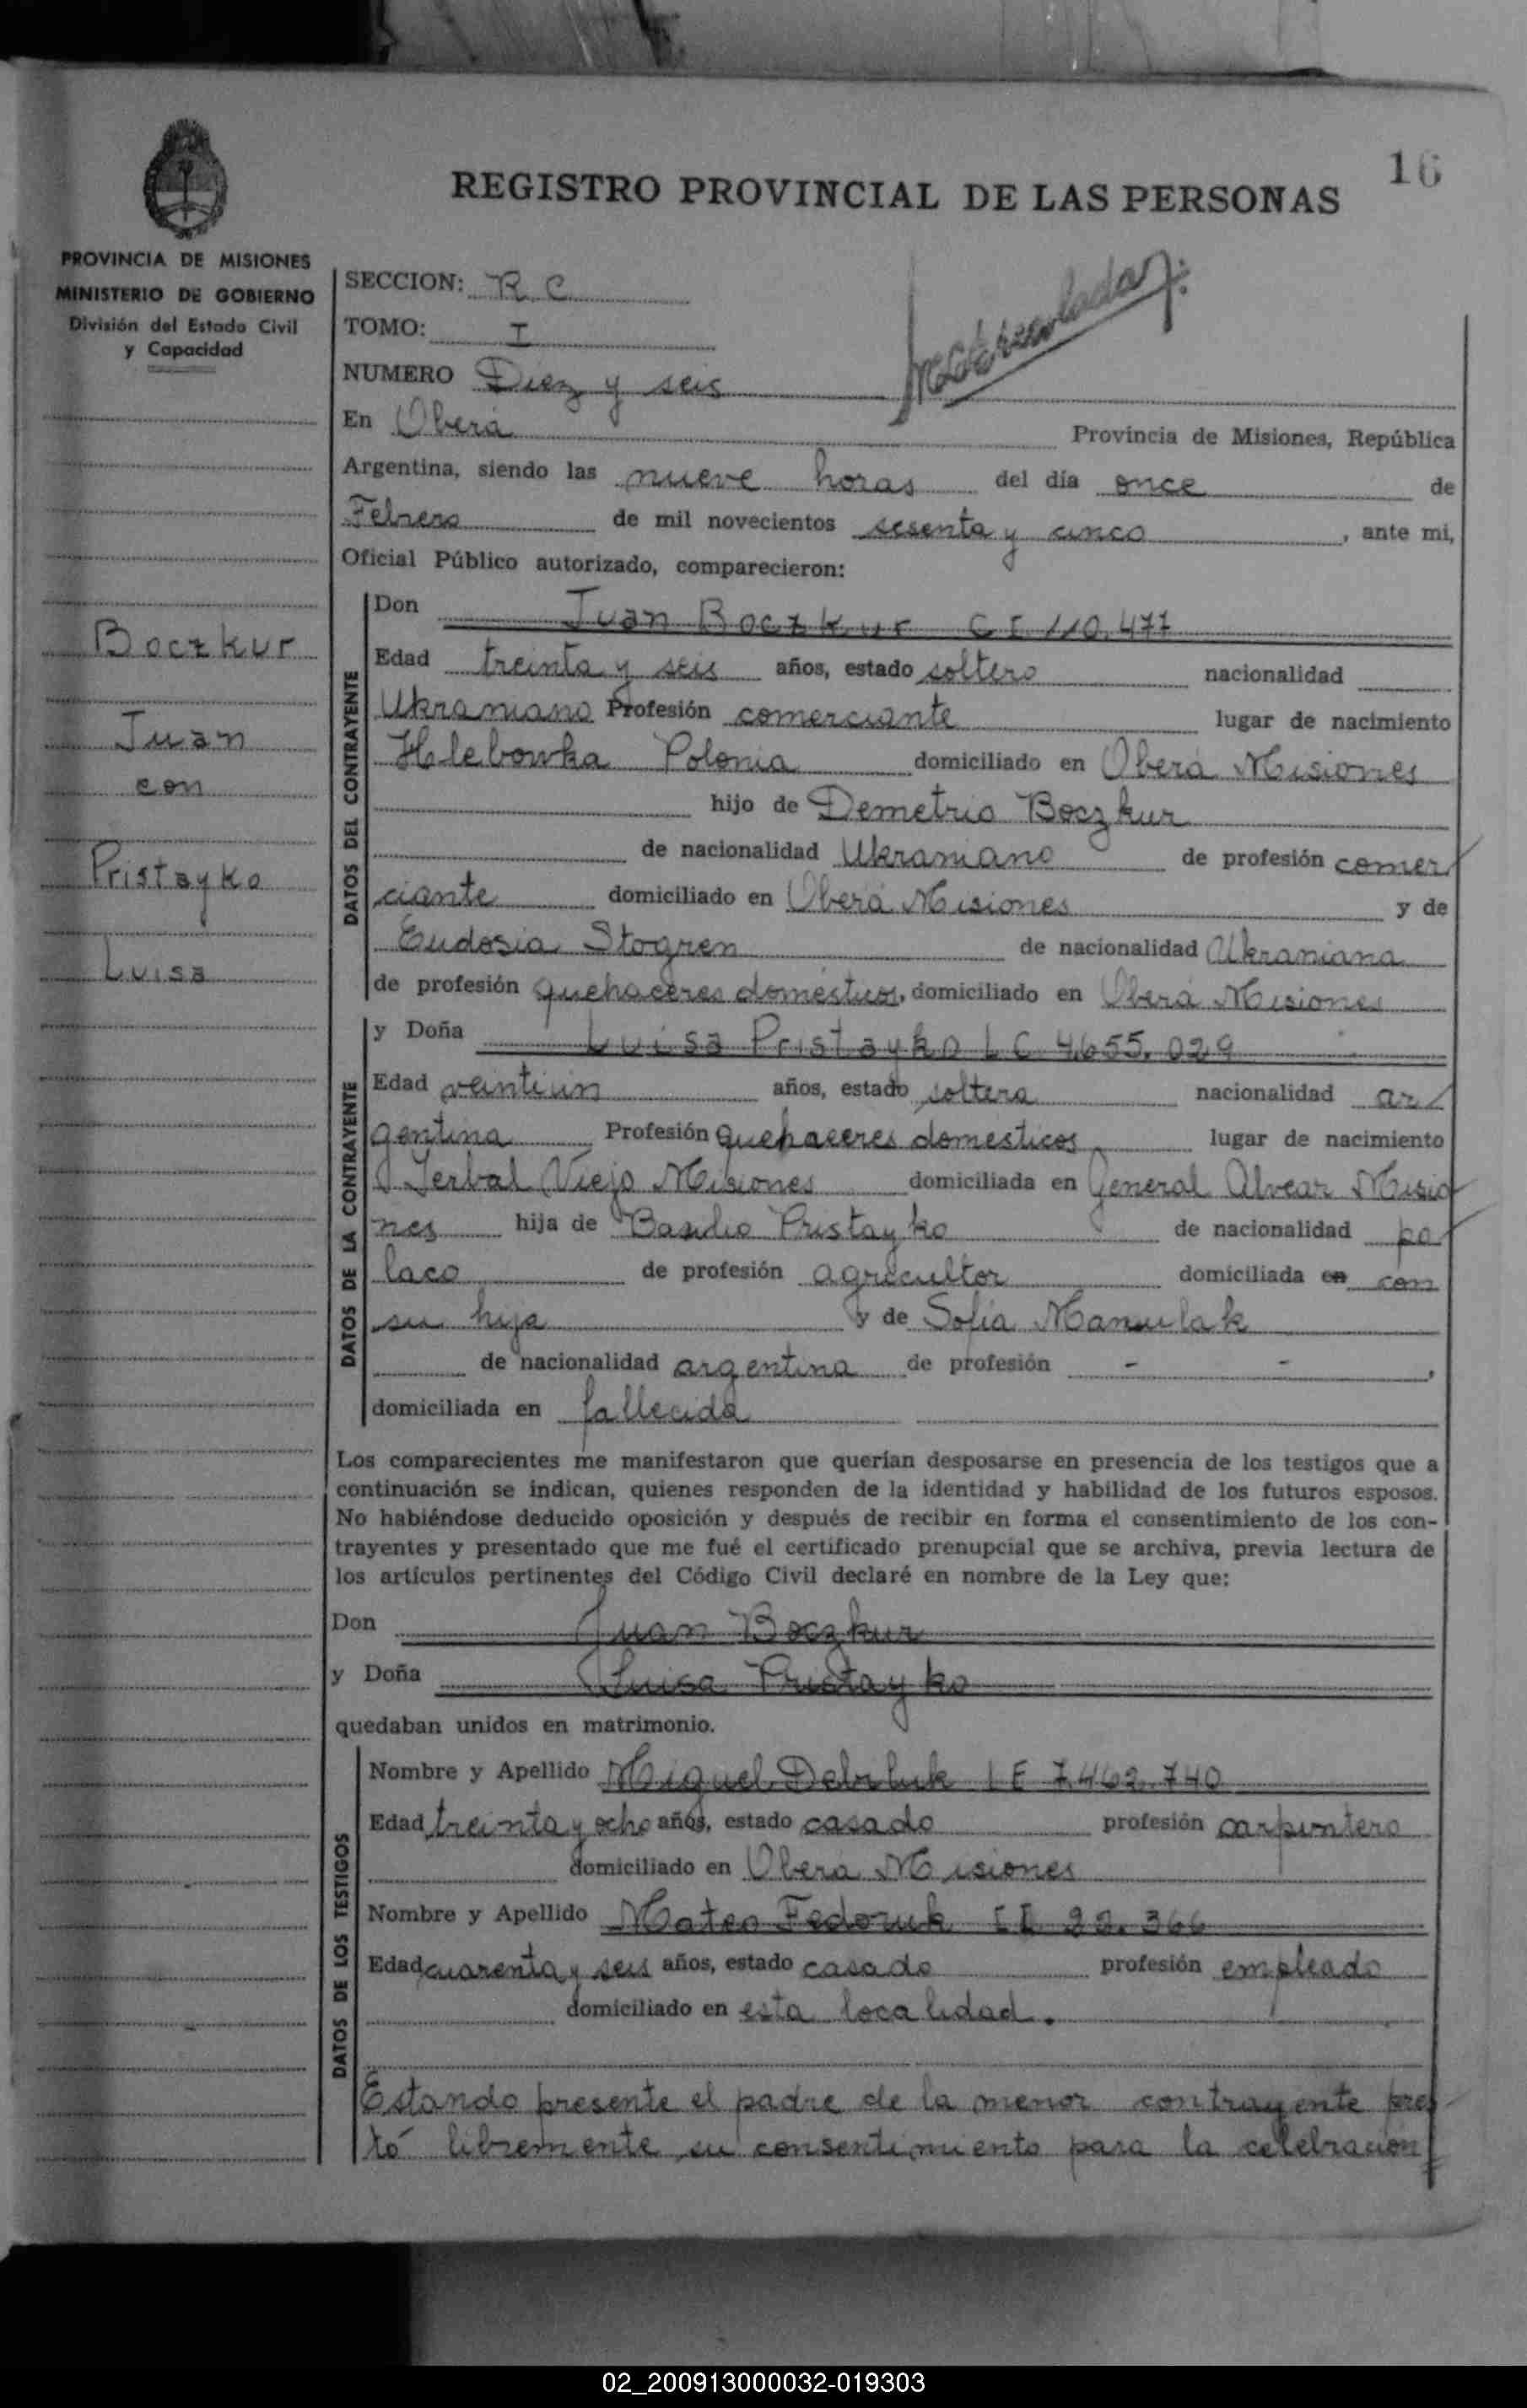 16
REGISTRO PROVINCIAL DE LAS PERSONAS
PROVINCIA DE MISIONES
MINISTERIO DE GOBIERNO
División del Estado Civil
y Capacidad
Boczkur
Juan
con
Pristayko
Luisa
SECCION: R C
TOMO: I
NUMERO Diez y seis
En Oberá Provincia de Misiones, República
Argentina, siendo las nueve horas del día once de
Febrero de mil novecientos sesenta y cinco, ante mi,
Oficial Público autorizado, comparecieron:
DATOS DEL CONTRAYENTE
Don Juan Boczkur C I 110.477
Edad treinta y seis años, estado soltero nacionalidad
Ukraniano Profesión comerciante lugar de nacimiento
Hlebowka Polonia domiciliado en Oberá Misiones
hijo de Demetrio Boczkur
de nacionalidad Ukraniano de profesión comer
ciante domiciliado en Oberá Misiones y de
Eudosia Stogren de nacionalidad Ukraniana
de profesión quehaceres domésticos, domiciliado en Oberá Misiones
DATOS DE LA CONTRAYENTE
y Doña Luisa Pristayko L C 4.655.029
Edad veintiún años, estado soltera nacionalidad ar
gentina Profesión quehaceres domesticos lugar de nacimiento
Yerbal Viejo Misiones domiciliada en General Alvear Misio
nes hija de Basilio Pristayko de nacionalidad po
laco de profesión agricultor domiciliada en con
su hija y de Sofia Manulak
de nacionalidad argentina de profesión - - ,
domiciliada en fallecida
Los comparecientes me manifestaron que querían desposarse en presencia de los testigos que a
continuación se indican, quienes responden de la identidad y habilidad de los futuros esposos.
No habiéndose deducido oposición y después de recibir en forma el consentimiento de los con-
trayentes y presentado que me fué el certificado prenupcial que se archiva, previa lectura de
los artículos pertinentes del Código Civil declaré en nombre de la Ley que:
Don Juan Boczkur
y Doña Luisa Pristayko
quedaban unidos en matrimonio.
DATOS DE LOS TESTIGOS
Nombre y Apellido Miguel L E 7.462.740
Edad treinta y ocho años, estado casado profesión carpintero
domiciliado en Oberá Misiones
Nombre y Apellido Mateo Fedoruk C I 22.366
Edad cuarenta y seis años, estado casado profesión empleado
domiciliado en esta localidad.
Estando presente el padre de la menor contrayente pres
tó libremente su consentimiento para la celebracion
02_200913000032-019303